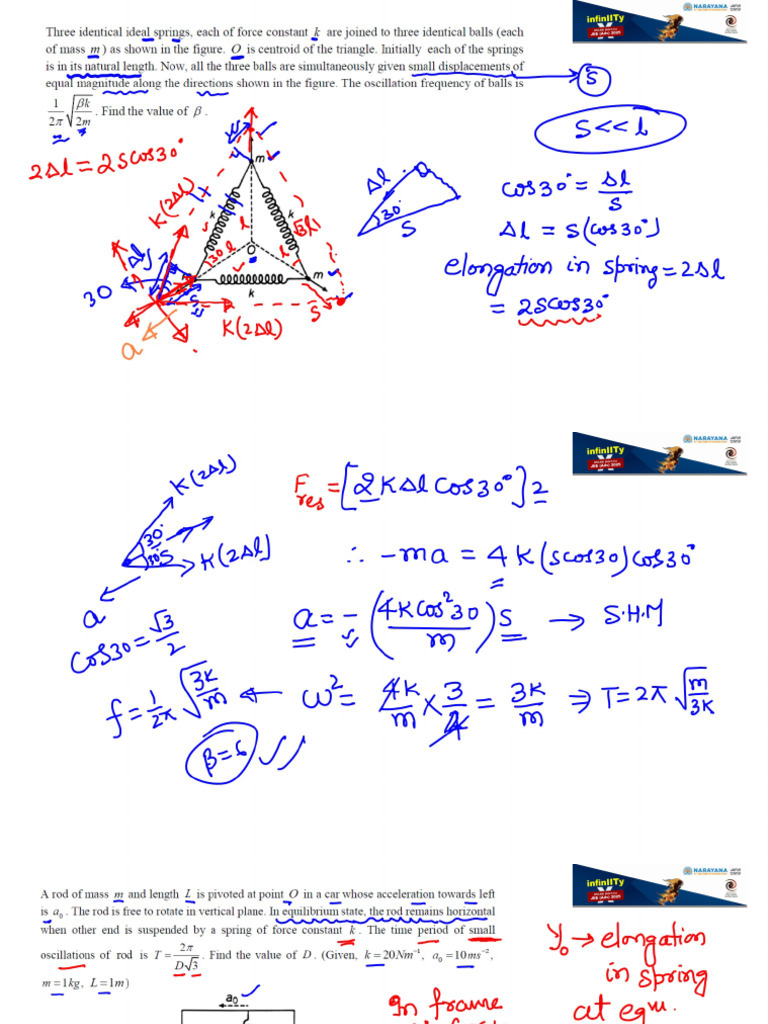 Three identical ideal springs, each of force constant k are joined to three identical balls (each
of mass m) as shown in the figure. O is centroid of the triangle. Initially each of the springs
is in its natural length. Now, all the three balls are simultaneously given small displacements of
equal magnitude along the directions shown in the figure. The oscillation frequency of balls is
1/2π √(βk/2m). Find the value of β.
infinIITy
NARAYANA
S
S<<l
2Δl=2scos30°
K(2Δl)
m
k
k
S
l
√3l
30
l
l
O
Δl
30
S
m
k
K(2Δl)
S
a
Δl
30°
S
cos30°=Δl/S
Δl = S(cos30°)
elongation in spring=2Δl
= 2scos30°
infinIITy
NARAYANA
K(2Δl)
30°
30°
S
K(2Δl)
a
F res = [2KΔl cos30°]2
∴ -ma = 4K(scos30)cos30°
a = -(4Kcos²30/m)S → S.H.M
cos30=√3/2
f=1/2π √(3K/m) ← ω²= 4K/m × 3/4 = 3K/m ⇒ T=2π √(m/3K)
β=6
infinIITy
NARAYANA
A rod of mass m and length L is pivoted at point O in a car whose acceleration towards left
is a₀. The rod is free to rotate in vertical plane. In equilibrium state, the rod remains horizontal
when other end is suspended by a spring of force constant k. The time period of small
oscillations of rod is T = 2π/D√3. Find the value of D. (Given, k = 20Nm⁻¹, a₀ = 10ms⁻²,
m = 1kg, L = 1m)
a₀
y₀ → elongation
in spring
at eqm.
In frame